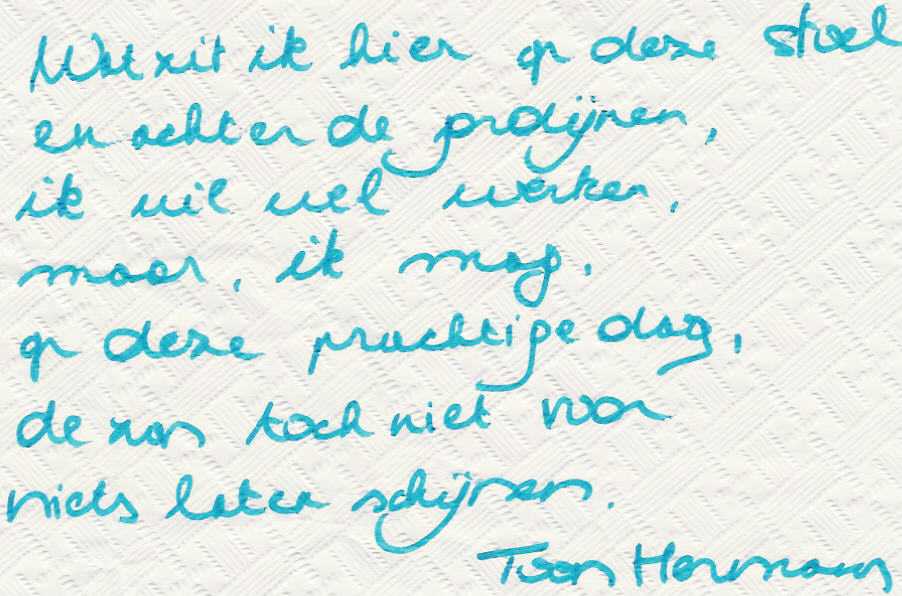 Wat zit ik hier op deze stoel
en achter de gordijnen,
ik wil wel werken,
maar, ik mag,
op deze prachtige dag,
de zon toch niet voor
niets laten schijnen.
Toon Hermans